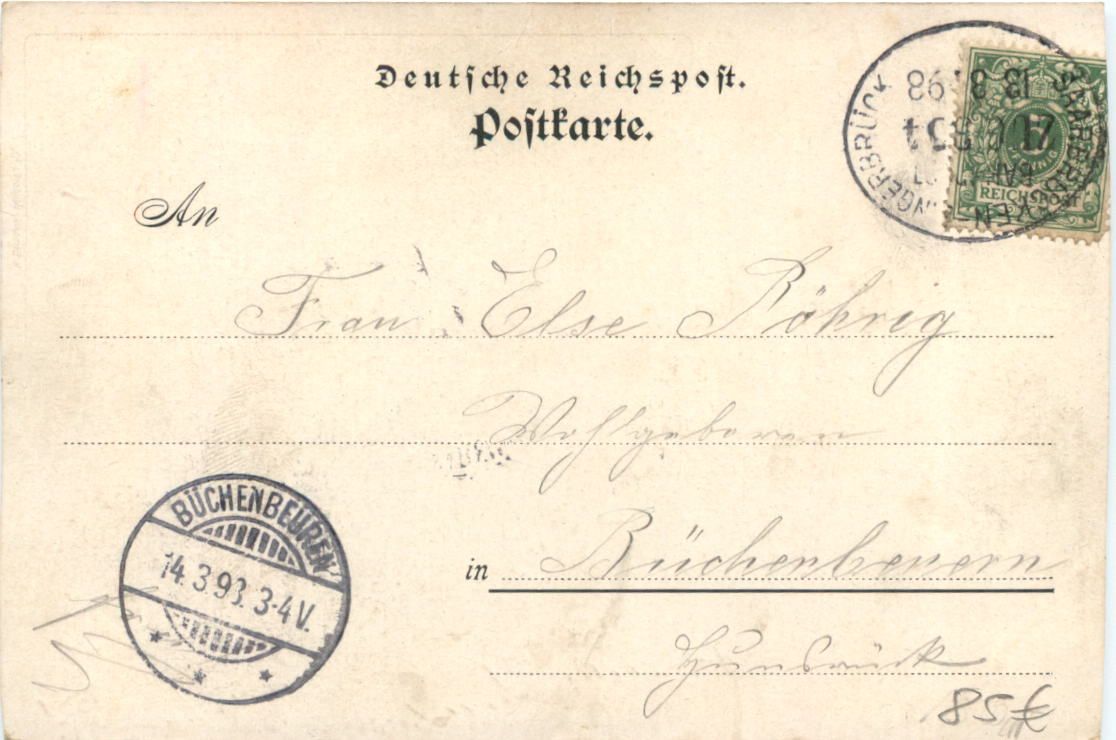 Deutsche Reichspost.
Postkarte.
SAARBRÜCKEN-
BINGERBRÜCK
13 3 98
REICHSPOST
An
Frau Else Röhrig
Wohlgeboren
in Büchenbeuern
Hunsrück
BÜCHENBEUREN
14.3.98. 3-4V.
85€